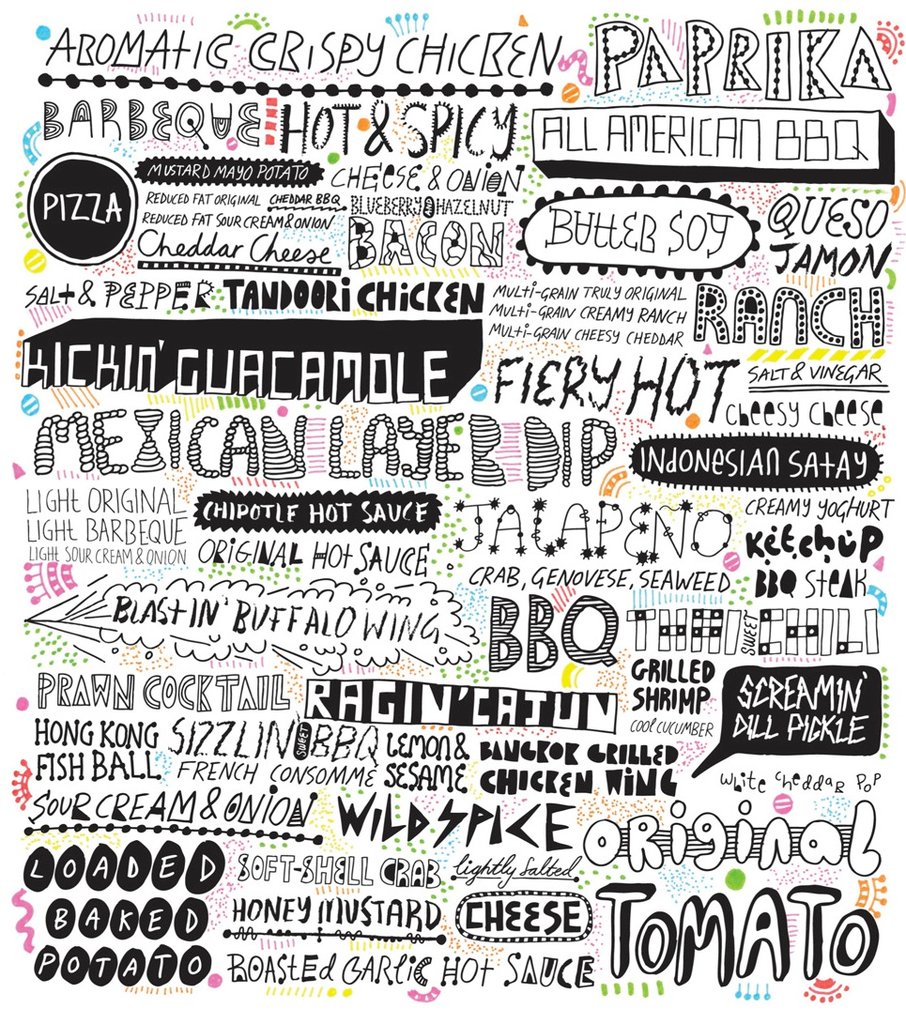 AROMATIC CRISPY CHICKEN
PAPRIKA
BARBEQUE
HOT & SPICY
ALL AMERICAN BBQ
PIZZA
MUSTARD MAYO POTATO
CHEESE & ONION
REDUCED FAT ORIGINAL
CHEDDAR BBQ
BLUEBERRY & HAZELNUT
REDUCED FAT SOUR CREAM & ONION
Cheddar Cheese
BACON
BUTTER SOY
QUESO
JAMON
SALT & PEPPER
TANDOORI CHICKEN
MULTI-GRAIN TRULY ORIGINAL
MULTI-GRAIN CREAMY RANCH
MULTI-GRAIN CHEESY CHEDDAR
RANCH
KICKIN' GUACAMOLE
FIERY HOT
SALT & VINEGAR
cheesy cheese
MEXICAN LAYER DIP
INDONESIAN SATAY
LIGHT ORIGINAL
LIGHT BARBEQUE
LIGHT SOUR CREAM & ONION
CHIPOTLE HOT SAUCE
ORIGINAL HOT SAUCE
JALAPEÑO
CREAMY YOGHURT
KetchUP
CRAB, GENOVESE, SEAWEED
BBQ STEAK
BLASTIN' BUFFALO WING
BBQ
THAI SWEET CHILI
GRILLED
SHRIMP
COOL CUCUMBER
SCREAMIN'
DILL PICKLE
PRAWN COCKTAIL
RAGIN' CAJUN
HONG KONG
FISH BALL
SIZZLIN' SWEET BBQ
FRENCH CONSOMMÉ
LEMON &
SESAME
BANGKOK GRILLED
CHICKEN WING
White Cheddar Pop
SOUR CREAM & ONION
WILD SPICE
original
LOADED
BAKED
POTATO
SOFT-SHELL CRAB
lightly salted
HONEY MUSTARD
CHEESE
TOMATO
ROASTED GARLIC HOT SAUCE